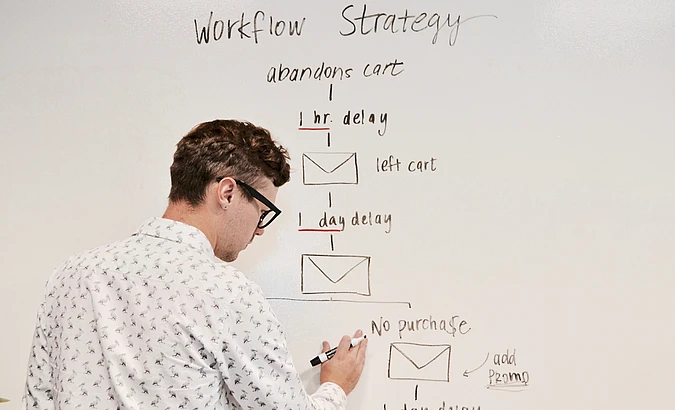 Workflow Strategy
abandons cart
1 hr. delay
left cart
1 day delay
No purchase
add
promo
delay